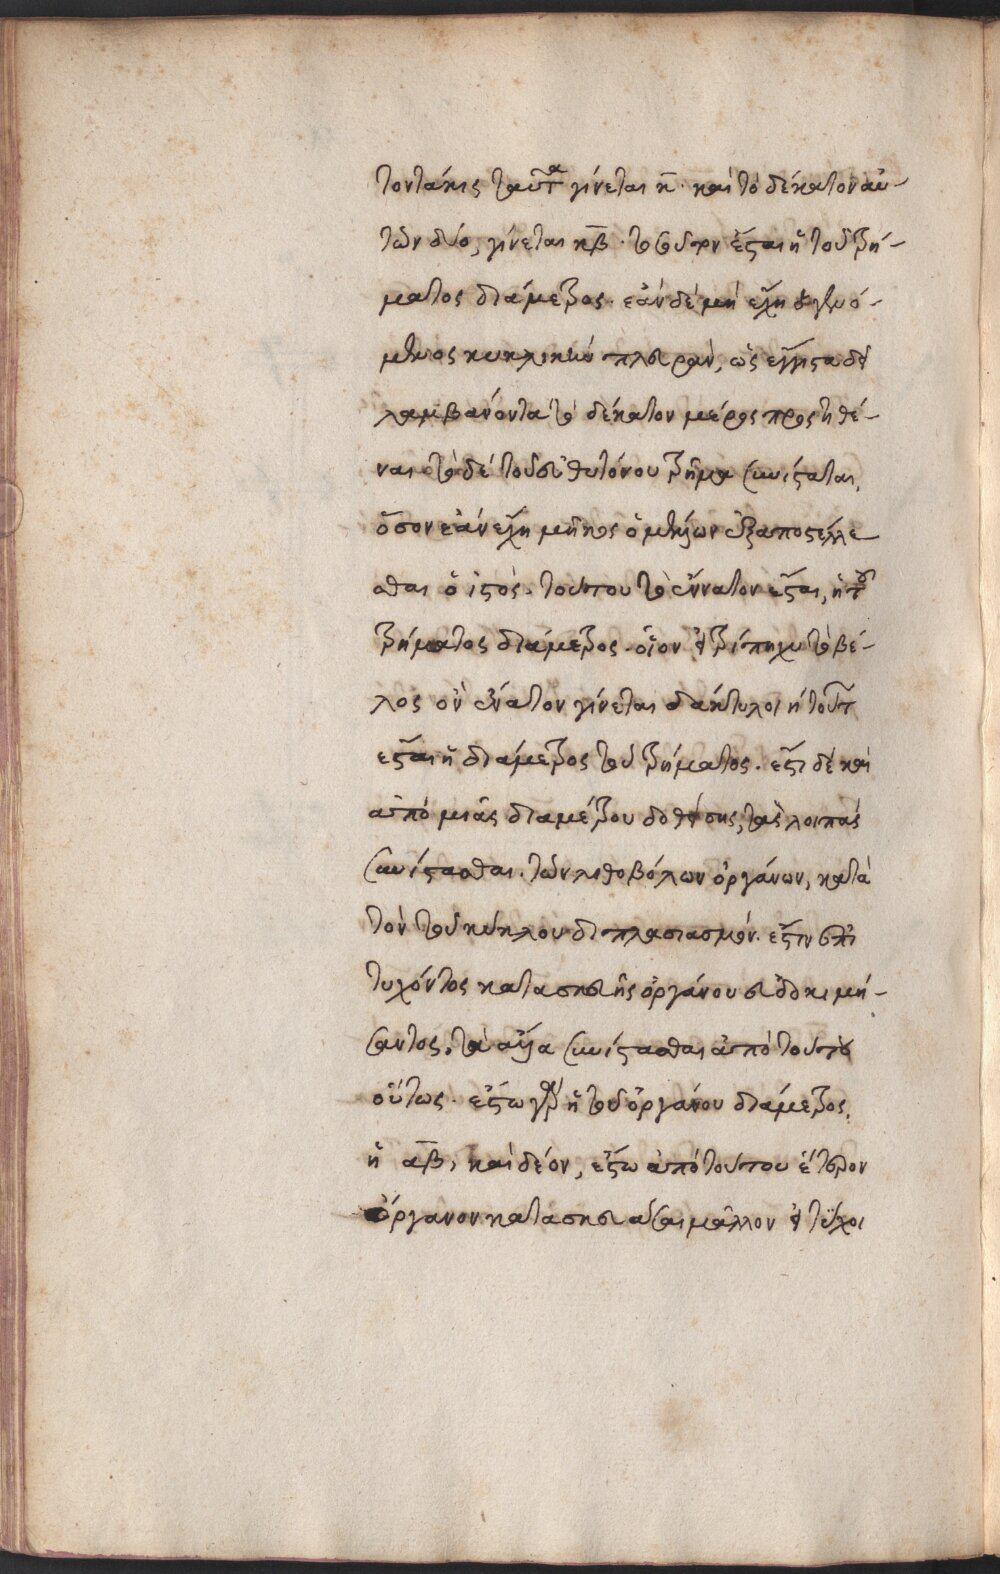 τοντάκις ταῦτα γίνεται κ̅· καὶ τὸ δέκατον αὐ-
τῶν δύο, γίνεται κ̅β̅· τοσούτων ἔσται ἡ τοῦ τρή-
ματος διάμετρος· ἐὰν δὲ μὴ ἔχη ὁ γενό-
μενος κυκλικὴν πλευρὰν, ὡς ἔγγιστα δεῖ
λαμβάνοντα τὸ δέκατον μέρος προστιθέ-
ναι τὸ δὲ τοῦ εὐθυτόνου τρῆμα συνίσταται,
ὅσον ἐὰν ἔχη μῆκος ὁ μέλλων ἐξαποστέλλε
σθαι ὀιστός. τούτου τὸ ἔννατον ἔσται, ἡ τοῦ
τρήματος διάμετρος. οἷον ἐν τρίπηχυ τὸ βέ-
λος οὗ ἔνατον γίνεται δάκτυλοι η τούτων
ἔσται ἡ διάμετρος τοῦ τρήματος. ἔστι δὲ καὶ
ἀπὸ μιᾶς διαμέτρου δοθείσης, τὰς λοιπὰς
συνίστασθαι. τῶν λιθοβόλων ὀργάνων, κατὰ
τὸν τοῦ κύκλου διπλασιασμόν. ἔστιν ἐπὶ
τυχόντος κατασκευῆς ὀργάνου εὐδοκιμή-
σαντος, τὰ ἄλλα συνίστασθαι ἀπὸ τούτου
οὕτως. ἔστω γὰρ ἡ τοῦ ὀργάνου διάμετρος,
ἡ α̅β̅, καὶ δέον, ἔστω ἀπὸ τούτου ἕτερον
ὄργανον κατασκευάσαι μᾶλλον εἰ τύχοι